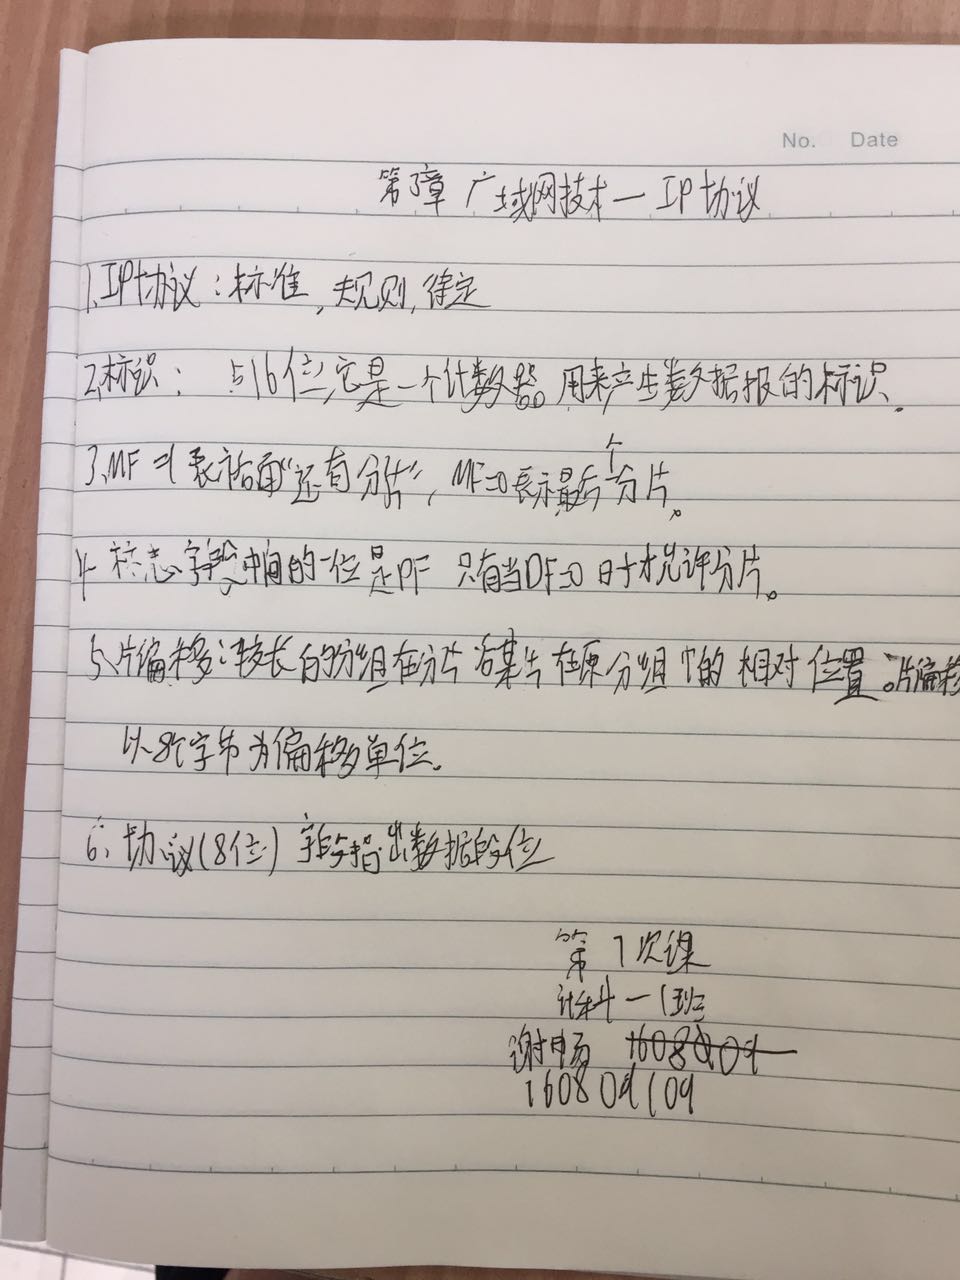 No. Date
第3章 广域网技术—IP协议
1、IP协议：标准，规则，待定
2、标识： 516位，它是一个计数器。用来产生数据报的标识、
3、MF=1表示后面“还有分片”，MF=0表示最后个分片。
4、标志字段中间的一位是DF 只有当DF=0时才允许分片。
5、片偏移：较长的分组在分片后某片在原分组中的相对位置。片偏移
以8个字节为偏移单位。
6、协议(8位) 字段指出数据的位
第7次课
计科一1班
谢
160809109